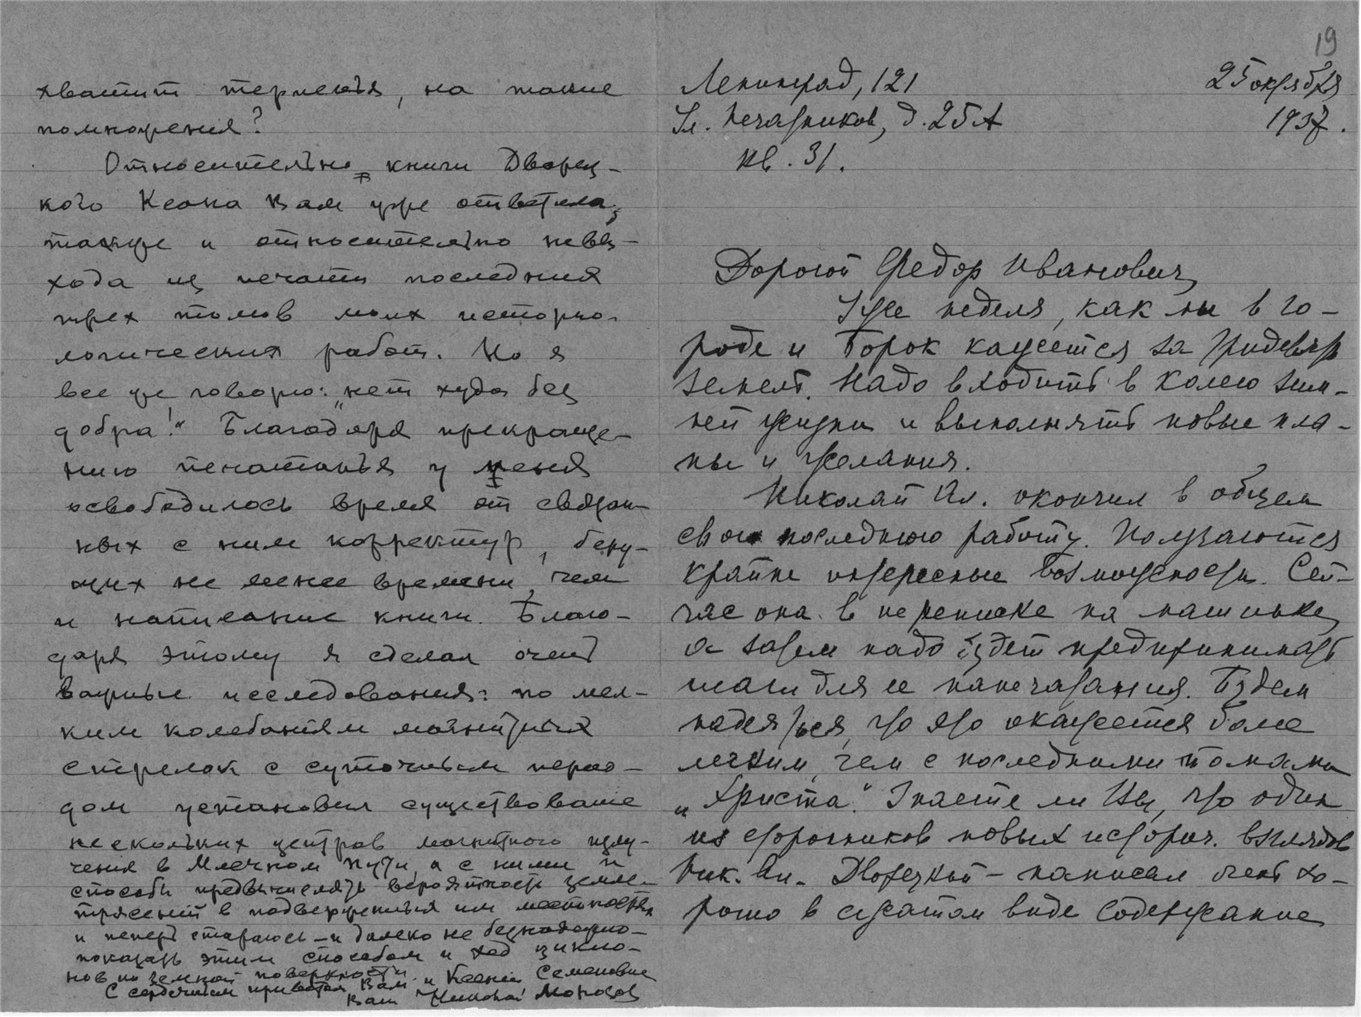 хватит терпенья, на такие
помножения?
Относительно книги Дворец-
кого Ксана Вам уже ответила,
также и относительно невы-
хода из печати последних
трех томов моих историо-
логических работ. Но я
все же говорю: "нет худа без
добра!" Благодаря прекраще-
нию печатанья у меня
освободилось время от связан-
ных с ним корректур, беру-
щих не менее времени, чем
и написание книги. Благо-
даря этому я сделал очень
важные исследования: по мел-
ким колебаниям магнитных
стрелок с суточным перио-
дом установил существование
нескольких центров магнитного излу-
чения в Млечном Пути, а с ними и
способы предвычислять вероятность земле-
трясений в подверженных им местностях
и теперь стараюсь – и далеко не безнадежно –
показать этим способом и ход цикло-
нов по земной поверхности.
С сердечным приветом Вам и Ксении Семеновне
Ваш Николай Морозов
19
Ленинград, 121 25 октября
Ул. Печатников, д. 25А 1937.
кв. 31.
Дорогой Федор Иванович,
Уже неделя, как мы в го-
роде и Борок кажется за тридевять
земель. Надо входить в колею зим-
ней жизни и выполнять новые пла-
ны и желания.
Николай Ал. окончил в общем
свою последнюю работу. Получаются
крайне интересные возможности. Сей-
час она в переписке на машинке,
а затем надо будет предпринимать
шаги для ее напечатания. Будем
надеяться, что это окажется более
легким, чем с последними томами
"Христа". Знаете ли Вы, что один
из сторонников новых историч. взглядов
Ник. Ал. Дворецкий – написал очень хо-
рошо в сжатом виде содержание